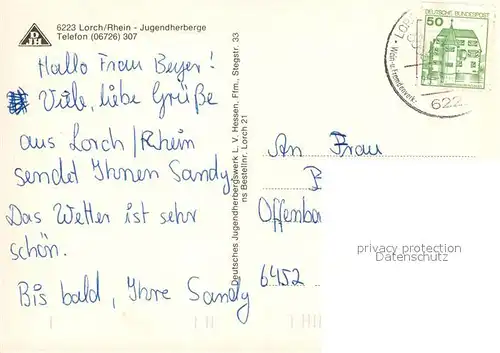 6223 Lorch/Rhein - Jugendherberge
Telefon (06726) 307
DJH
Hallo Frau Beyer!
Viele, liebe Grüße
aus Lorch/Rhein
sendet Ihnen Sandy
Das Wetter ist sehr
schön.
Bis bald, Ihre Sandy
Deutsches Jugendherbergswerk L. V. Hessen, Ffm., Stegstr. 33
ns Bestellnr. Lorch 21
DEUTSCHE BUNDESPOST
50
622
An Frau
B
Offenba
6452
privacy protection
Datenschutz